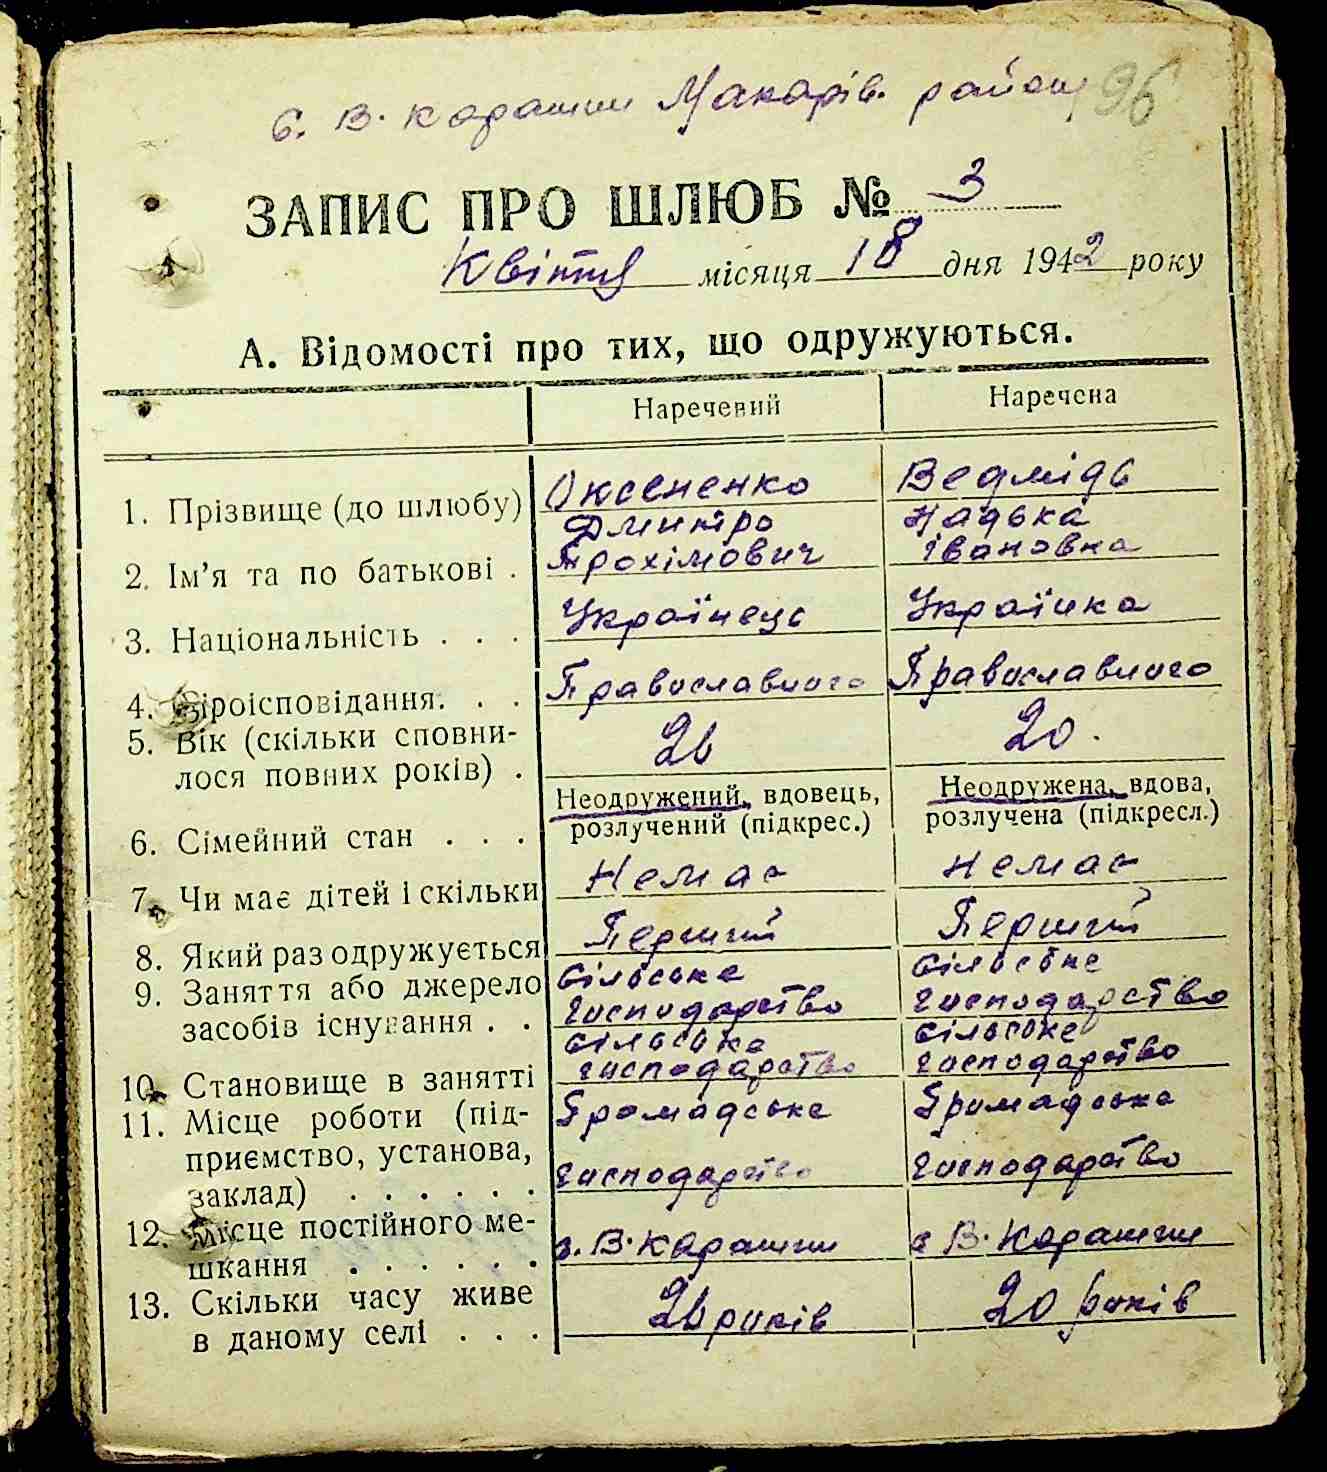 с. В. Карашин Макарів. район 96
ЗАПИС ПРО ШЛЮБ № 3
Квітня місяця 18 дня 1942 року
А. Відомості про тих, що одружуються.
Наречений Наречена
1. Прізвище (до шлюбу) Оксененко Ведмідь
2. Ім'я та по батькові . Дмитро Трохімович Надька Івановна
3. Національність . . . Українець Українка
4. Віроісповідання. . . Православного Православного
5. Вік (скільки сповни-
лося повних років) . 26 20.
Неодружений, вдовець, Неодружена, вдова,
6. Сімейний стан . . . розлучений (підкрес.) розлучена (підкресл.)
7. Чи має дітей і скільки Немає Немає
8. Який раз одружується Перший Перший
9. Заняття або джерело Сільське Сільське
засобів існування . . господарство господарство
10. Становище в занятті Сільське господарство Сільське господарство
11. Місце роботи (під- Громадське Громадське
приємство, установа, господарство господарство
заклад) . . . . . .
12. Місце постійного ме- с. В. Карашин с В. Карашин
шкання . . . . . .
13. Скільки часу живе 26 років 20 років
в даному селі . . .